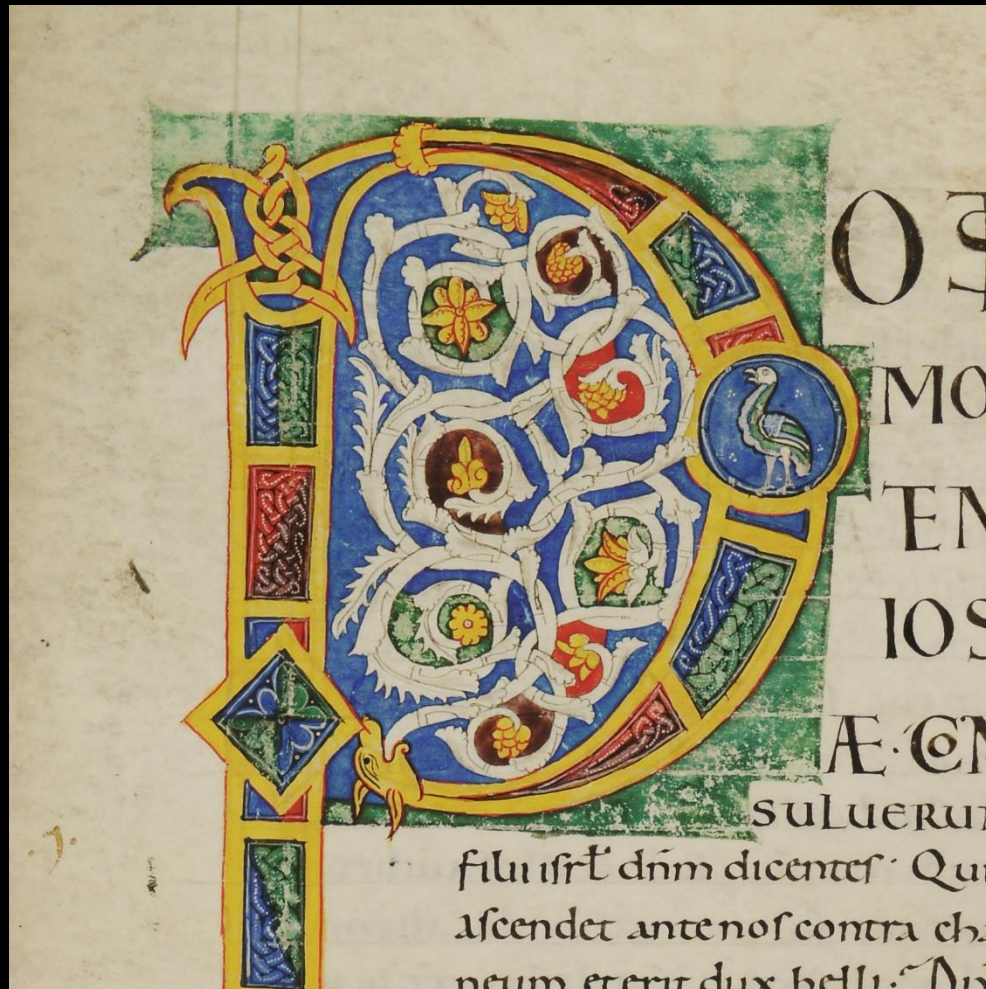 POS
MO
TE
IOS
Æ·CON
SULUERUN
filii isrł dñm dicentes· Qui
ascendet ante nos contra cha
neum et erit dux belli· Dix